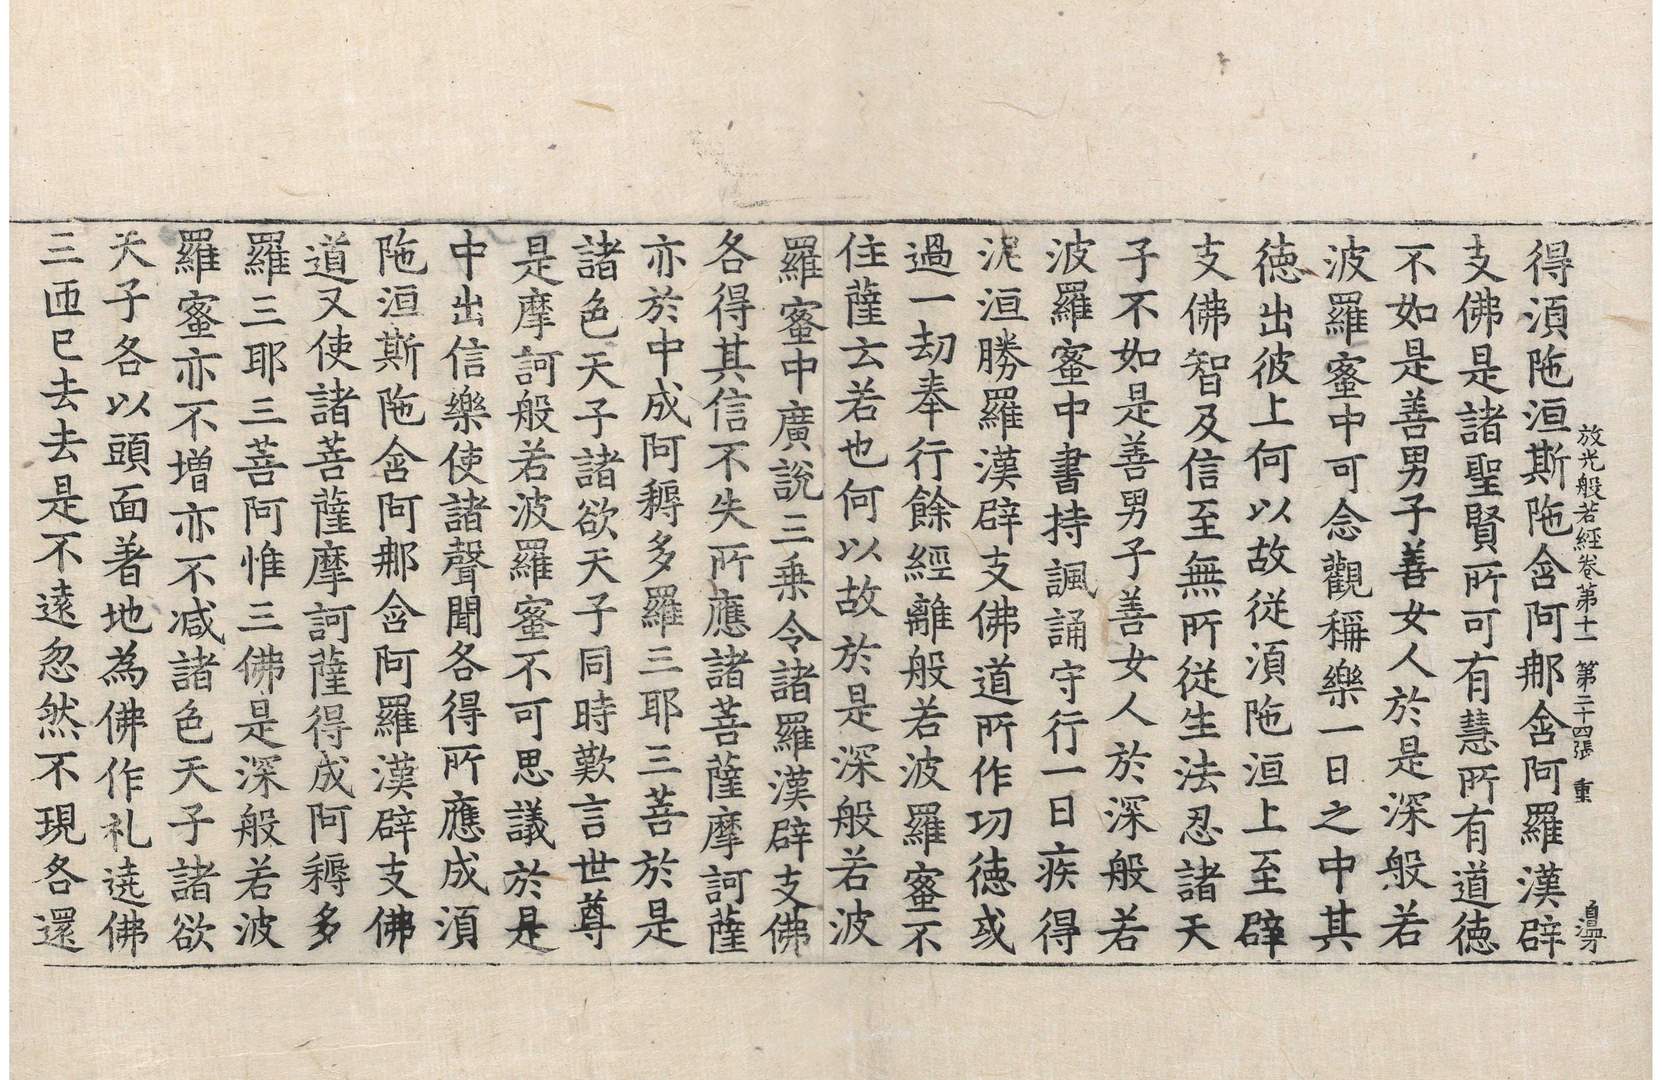 放光般若經卷第十一 第二十四張 重
得湏陁洹斯陁含阿那含阿羅漢辟
支佛是諸聖賢所可有慧所有道德
不如是善男子善女人於是深般若
波羅蜜中可念觀稱樂一日之中其
德出彼上何以故從湏陁洹上至辟
支佛智及信至無所從生法忍諸天
子不如是善男子善女人於深般若
波羅蜜中書持諷誦守行一日疾得
泥洹勝羅漢辟支佛道所作功德或
過一劫奉行餘經離般若波羅蜜不
住薩云若也何以故於是深般若波
羅蜜中廣說三乗令諸羅漢辟支佛
各得其信不失所應諸菩薩摩訶薩
亦於中成阿耨多羅三耶三菩於是
諸色天子諸欲天子同時歎言世尊
是摩訶般若波羅蜜不可思議於是
中出信樂使諸聲聞各得所應成湏
陁洹斯陁含阿那含阿羅漢辟支佛
道又使諸菩薩摩訶薩得成阿耨多
羅三耶三菩阿惟三佛是深般若波
羅蜜亦不増亦不减諸色天子諸欲
天子各以頭面著地為佛作礼遶佛
三匝已去去是不遠忽然不現各還